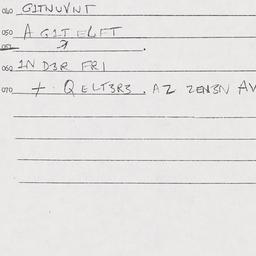 040 G1TNUVNT
050 A G1T ELFT
051 .
060 1N D3R FR1
070 + . Q ELT3R3 . AZ ZEN3N AV